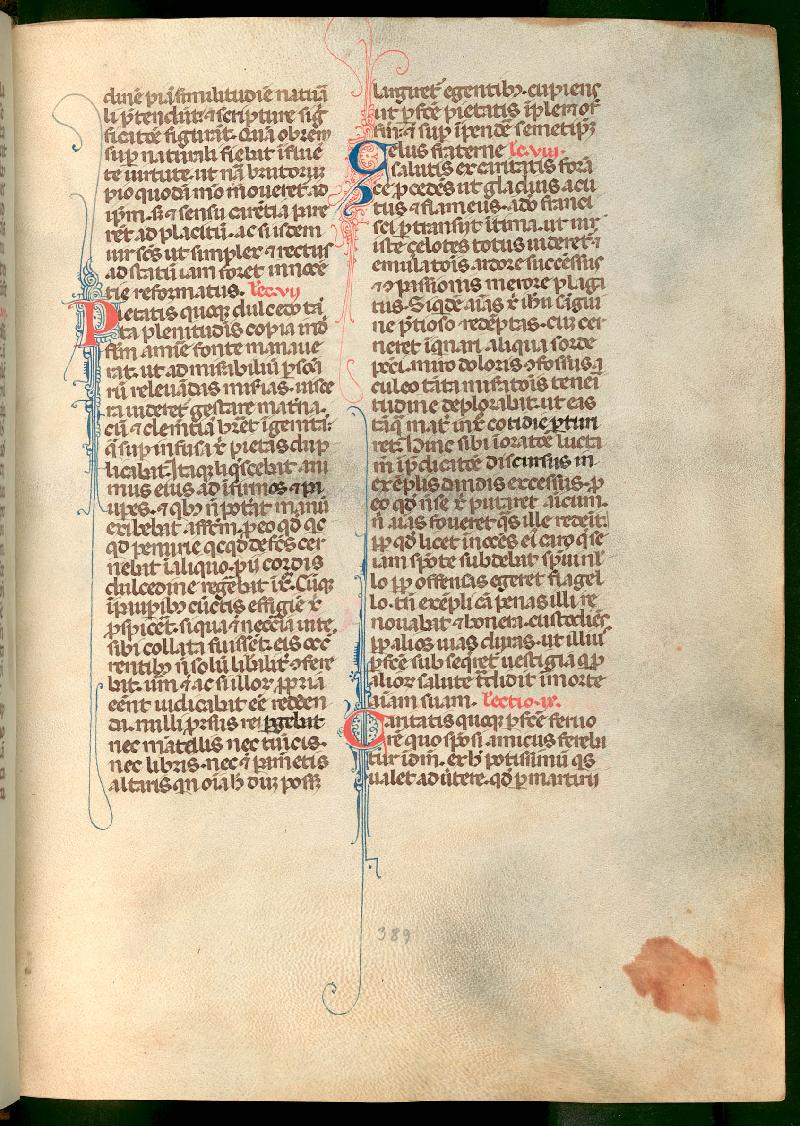 diuīe p̄ia similitudīe natura
li p̄tendūt ⁊ scripture sig
ficatōe figurāt. Quā obrem
sup naturali fiebat īflue
te uirtute. ut nā brutorum
pio quodā mō moueret̄ ad
ip̄m. s; ⁊ sensu carētia pare
rēt ad placitū. ac si isdem
uir scūs ut simplex ⁊ rectus
ad statū iam foret innocē
tie reformatus. lec. vij
Pietatis quoq; dulcedo tā
ta plenitudīs copia mō
fām amīe fonte manaue
rat. ut ad mis̄abiliū psōa
rū releuādas mis̄ias. uisce
ra uideret̄ gestare mat̄na.
cū ⁊ clemētia hr̄et īgenitā:
q̄ sup infusa xp̄i pietas dup
licabat. Itaq; liq̄scebat ani
mus eius ad īfirmos ⁊ pau
upes. ⁊ qb; n̄ potāt manū
exibebat affc̄m. p eo qd̄ qc
qd̄ penurie qcqd̄ defc̄s cer
nebat ī aliquo. pii cordis
dulcedine regēbat ī xp̄m. Cūq;
ī paupib; cūctis effigiē xp̄i
pspicet̄. si qua ⁊ nccīa uite.
sibi collata fuissēt. eis occ̄
rentib; n̄ solū libālit̄ offere
bat. uīm ⁊ ac si illor̄ ppria
eēnt iudicabat eē redden
da. nulli prsus rei pgebat
nec mātellis nec tūicis.
nec libris. nec ⁊ pametis
altaris qn oīa h̄ dū possꝫ
largiret̄ egentib;. cupiens
ut pfc̄e pietatis īpleret of
fm̄. ⁊ sup īpende semetip̄ꝫ
Zelus fraterne lc. viij.
salutis ex caritatis forā
ce pcedēs ut gladius acu
tus ⁊ flāmeus. adō franci
sci ptransiit ītima. ut uir
iste çelotes totus uideret̄ ⁊
emulatōis ardore succēssus
⁊ opassionis merore plaga
tus. Siqdē aīas xp̄i ihū sāgui
ne p̄tioso redēptas. cū cer
neret īqnari aliqua sorde
pcc̄i. miro doloris ofossus a
culeo tāta mis̄atōis tenei
tudine deplorabat. ut eas
tāq̄ mat̄ in xp̄o cotidie pturi
ret. Hinc sibi ī oratōe lucta
m ī pdicatōe discursus in
exēplis dandis excessus. p
eo qd̄ n̄ se xp̄i putaret amicum.
n̄ aīas foueret qs ille redeīt.
pp qd̄ licet īnocēs ei caro q̄ se
iam spōte subdebat spūi nl̄
lo pp offensas egeret flagel
lo. tn̄ exēpli cā penas illi re
nouabat ⁊ honera. custodiēs
pp alios uias duras. ut illius
pfc̄e sub seq̄ret̄ uestigia q̄ p
alior̄ salute t̄didit ī morte
aīam suam. lectio. ix.
Caritatis quoq; pfc̄e feruo
rē quo spōsi amicus ferebā
tur ī dm̄. ex h̄ potissimū qs
ualet aduertere. qd̄ p martirii
389